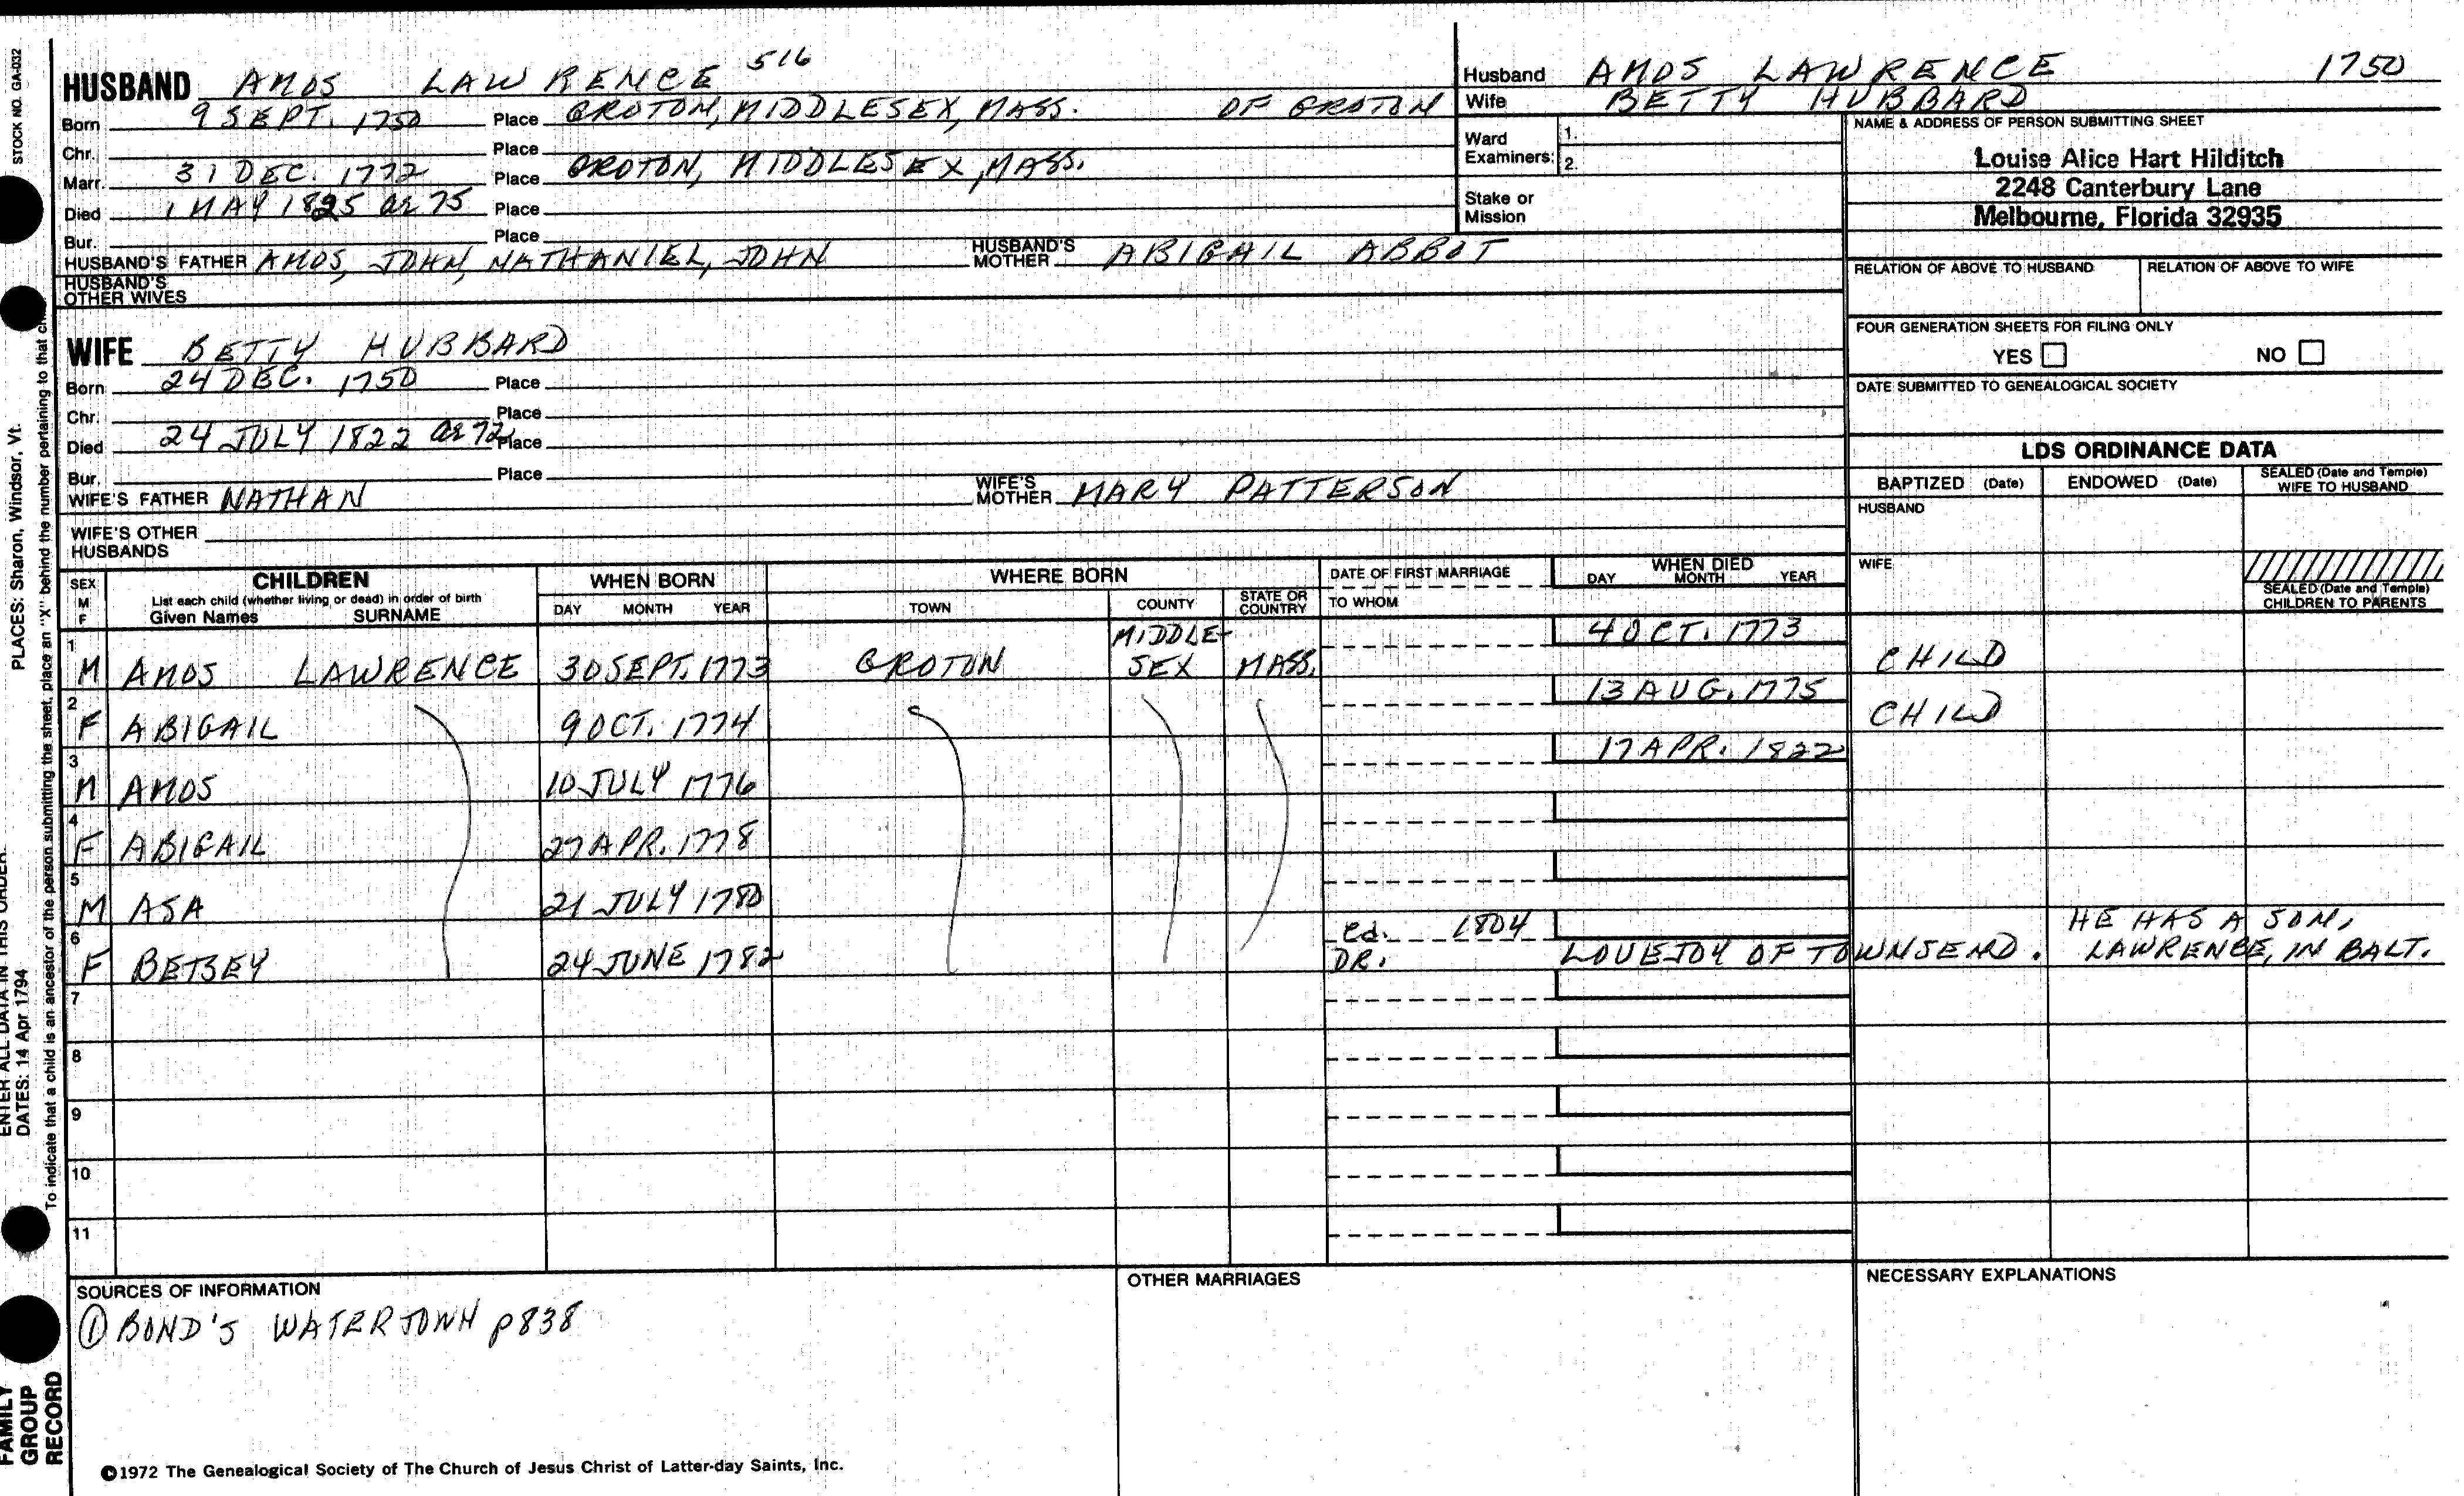 STOCK NO. GA-032
PLACES: Sharon, Windsor, Vt.
ENTER ALL DATA IN THIS ORDER:
DATES: 14 Apr 1794
To indicate that a child is an ancestor of the person submitting the sheet, place an "X" behind the number pertaining to that
FAMILY GROUP RECORD
HUSBAND AMOS LAWRENCE 516
Born 9 SEPT. 1750 Place GROTON, MIDDLESEX, MASS. OF GROTON
Chr. Place
Marr. 31 DEC. 1772 Place GROTON, MIDDLESEX, MASS.
Died 1 MAY 1825 ae 75 Place
Bur. Place
HUSBAND'S FATHER AMOS, JOHN, NATHANIEL, JOHN HUSBAND'S MOTHER ABIGAIL ABBOT
HUSBAND'S OTHER WIVES
WIFE BETTY HUBBARD
Born 24 DEC. 1750 Place
Chr. Place
Died 24 JULY 1822 ae 72 Place
Bur. Place
WIFE'S FATHER NATHAN WIFE'S MOTHER MARY PATTERSON
WIFE'S OTHER HUSBANDS
Husband AMOS LAWRENCE 1750
Wife BETTY HUBBARD
Ward Examiners: 1.
2.
Stake or Mission
NAME & ADDRESS OF PERSON SUBMITTING SHEET
Louise Alice Hart Hilditch
2248 Canterbury Lane
Melbourne, Florida 32935
RELATION OF ABOVE TO HUSBAND RELATION OF ABOVE TO WIFE
FOUR GENERATION SHEETS FOR FILING ONLY
YES NO
DATE SUBMITTED TO GENEALOGICAL SOCIETY
LDS ORDINANCE DATA
BAPTIZED (Date) ENDOWED (Date) SEALED (Date and Temple) WIFE TO HUSBAND
HUSBAND
WIFE
SEALED (Date and Temple) CHILDREN TO PARENTS
SEX M F CHILDREN WHEN BORN WHERE BORN DATE OF FIRST MARRIAGE WHEN DIED
List each child (whether living or dead) in order of birth
Given Names SURNAME DAY MONTH YEAR TOWN COUNTY STATE OR COUNTRY TO WHOM DAY MONTH YEAR
1 M AMOS LAWRENCE 30 SEPT. 1773 GROTON MIDDLE-SEX MASS. 4 OCT. 1773 CHILD
2 F ABIGAIL 9 OCT. 1774 13 AUG. 1775 CHILD
3 M AMOS 10 JULY 1776 17 APR. 1822
4 F ABIGAIL 27 APR. 1778
5 M ASA 21 JULY 1780
6 F BETSEY 24 JUNE 1782 cd. 1804
DR. LOVEJOY OF TOWNSEND. HE HAS A SON, LAWRENCE, IN BALT.
7
8
9
10
11
SOURCES OF INFORMATION
① BOND'S WATERTOWN p838
OTHER MARRIAGES
NECESSARY EXPLANATIONS
©1972 The Genealogical Society of The Church of Jesus Christ of Latter-day Saints, Inc.